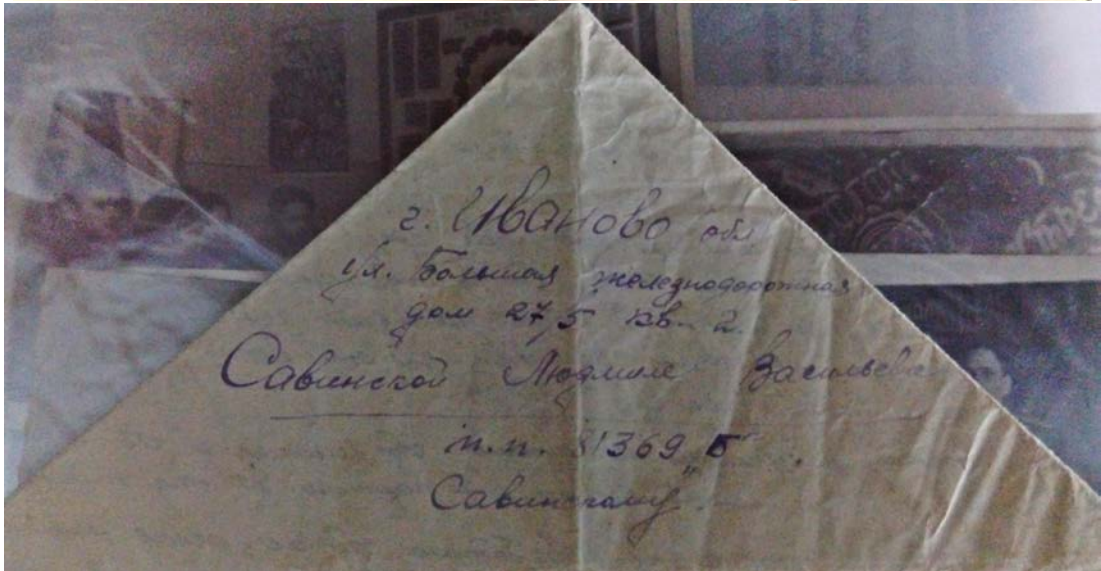 г. Иваново обл
ул. Большая железнодорожная
дом 27/5 кв. 2.
Савинской Людмиле Васильевне
п.п. 81369 „Б"
Савинскому